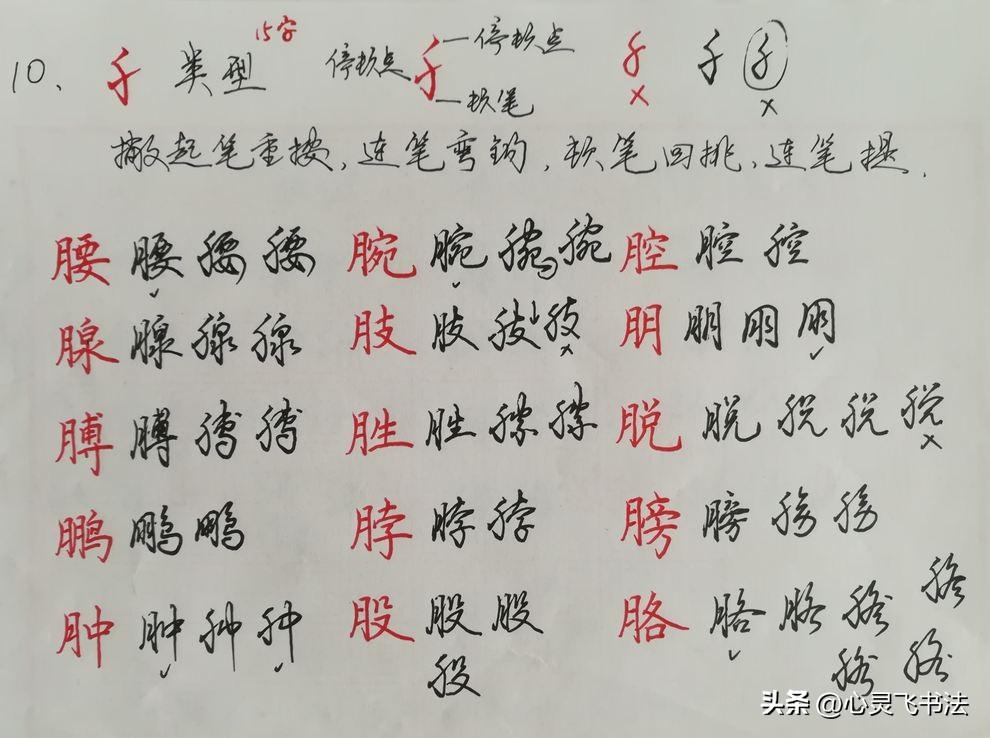 15字
10、 类型 停顿点 一停顿点
一顿笔 × ×
撇起笔重按，连笔弯钩，顿笔回挑，连笔提．
腰 腰 腰 腰 腕 腕 腕 腕 腔 腔 腔
腺 腺 腺 腺 肢 肢 肢 肢 朋 朋 朋 朋
膊 膊 膊 膊 胜 胜 胜 胜 脱 脱 脱 脱 脱
鹏 鹏 鹏 脖 脖 脖 膀 膀 膀
肿 肿 肿 肿 股 股 股 胳 胳 胳 胳 胳
股 胳 胳
头条 @心灵飞书法